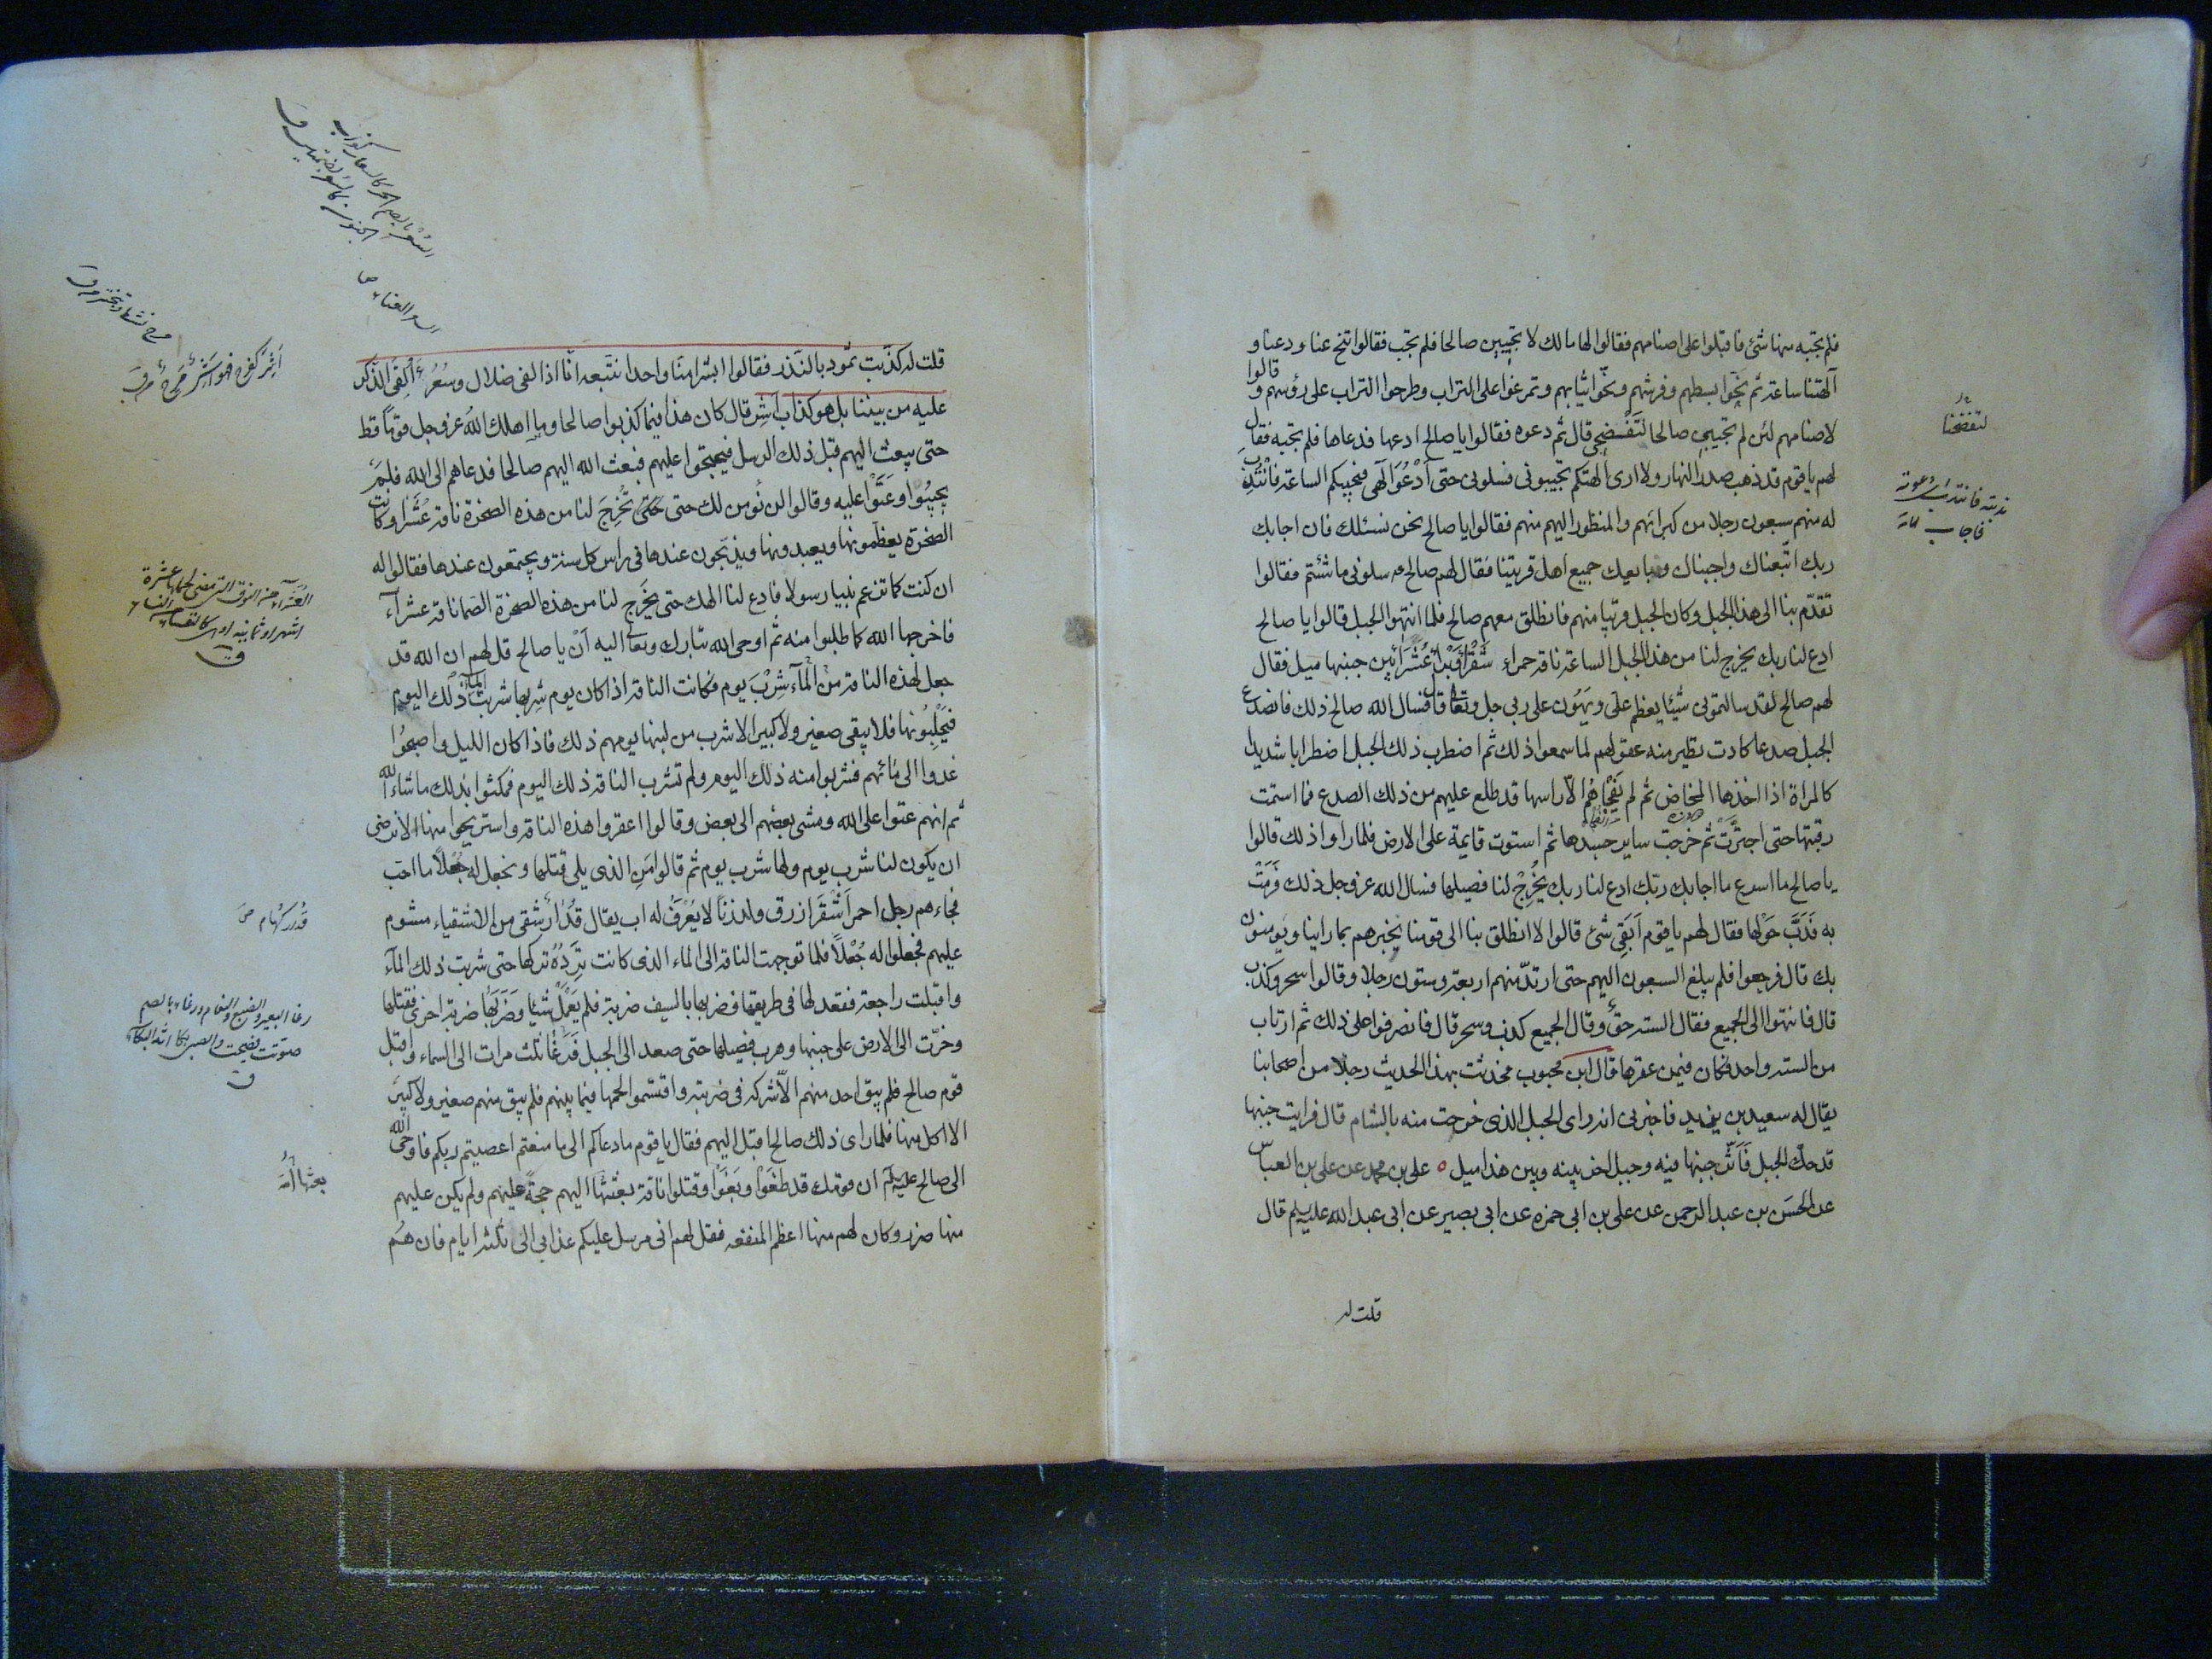 فلم يجبه منها شئ فاقبلوا على اصنامهم فقالوا لها مالك لا تجيبين صالحا فلم تجب فقالوا تنح عنا ودعنا و
آلهتنا ساعة ثم نحّوا بسطهم وفرشهم ونحّوا ثيابهم وتمرغوا على التراب وطرحوا التراب على رؤسهم و قالوا
لاصنامهم لئن لم تجيبى صالحا لتفضحى قال ثم دعوه فقالوا يا صالح ادعها فدعاها فلم تجبه فقال
لهم يا قوم قد ذهب صدر النهار ولا ارى آلهتكم تجيبونى فسلونى حتى ادعو آلهى فيجيبكم الساعة فانتدب
له منهم سبعون رجلا من كبرائهم والمنظور اليهم منهم فقالوا يا صالح نحن نسئلك فان اجابك
ربك اتبعناك واجبناك ويبايعك جميع اهل قريتنا فقال لهم صالح ع سلونى ما شئتم فقالوا
تقدّم بنا الى هذا الجبل وكان الجبل قريبا منهم فانطلق معهم صالح فلما انتهوا الى الجبل قالوا يا صالح
ادع لنا ربك يخرج لنا من هذا الجبل الساعة ناقة حمراء شقراء وبراء عشراء بين جنبيها ميل فقال
لهم صالح لقد سالتمونى شيئا يعظم علىّ ويهون على ربى جل وتعالى قال فسال الله صالح ذلك فانصدع
الجبل صدعا كادت تطير منه عقولهم لما سمعوا ذلك ثم اضطرب ذلك الجبل اضطرابا شديدا
كالمراة اذا اخذها المخاض ثم لم يفجاهم الّا راسها قد طلع عليهم من ذلك الصدع فما استمت
رقبتها حتى اجترّت ثم خرجت ساير جسدها ثم استوت قايمة على الارض فلما راوا ذلك قالوا
يا صالح ما اسرع ما اجابك ربّك ادع لنا ربك يخرج لنا فصيلها فسال الله عز وجل ذلك فرمت
به فدبّ حولها فقال لهم يا قوم ابقى شئ قالوا لا انطلق بنا الى قومنا نخبرهم بما راينا ويؤمنون
بك قال فرجعوا فلم يبلغ السبعون اليهم حتى ارتدّ منهم اربعة وستون رجلا وقالوا سحر وكذب
قال فانتهوا الى الجميع فقال الستة حقّ وقال الجميع كذب وسحر قال فانصرفوا على ذلك ثم ارتاب
من الستة واحد فكان فيمن عقرها قال ابن محبوب فحدثت بهذا الحديث رجلا من اصحابنا
يقال له سعيد بن يزيد فاخبرنى انه راى الجبل الذى خرجت منه بالشام قال فرايت جنبها
قد حك الجبل فاثّر جنبها فيه وجبل اخر بينه وبين هذا ميل ٥ على بن محمد عن على بن العباس
عن الحسن بن عبد الرحمن عن على بن ابى حمزه عن ابى بصير عن ابى عبد الله عليه السلام قال
لتفضحنا
ندبته فانتدب اى دعوته
فاجاب
قلت له
قلت له كذّبت ثمود بالنّذر فقالوا ابشرا منّا واحدا نتّبعه انّا اذا لفى ضلال وسعر ءالقى الذكر
عليه من بيننا بل هو كذاب اشر قال كان هذا فيما كذبوا صالحا وما اهلك الله عز وجل قوما قط
حتى يبعث اليهم قبل ذلك الرسل فيحتجوا عليهم فبعث الله اليهم صالحا فدعاهم الى الله فلم
يجيبوا وعتوا عليه وقالوا لن نؤمن لك حتى تخرج لنا من هذه الصخرة ناقة عشراء وكانت
الصخرة يعظمونها ويعبدونها ويذبحون عندها فى راس كل سنة ويجتمعون عندها فقالوا له
ان كنت كما تزعم نبيا رسولا فادع لنا الهك حتى يخرج لنا من هذه الصخرة الصّما ناقة عشرآء
فاخرجها الله كما طلبوا منه ثم اوحى الله تبارك وتعالى اليه ان يا صالح قل لهم ان الله قد
جعل لهذه الناقة من المآء شرب يوم فكانت الناقة اذا كان يوم شربها شربت الماء ذلك اليوم
فيحلبونها فلا يبقى صغير ولا كبير الا شرب من لبنها يومهم ذلك فاذا كان الليل واصبحوا
غدوا الى مائهم فشربوا منه ذلك اليوم ولم تشرب الناقة ذلك اليوم فمكثوا بذلك ما شاء الله
ثم انهم عتوا على الله ومشى بعضهم الى بعض وقالوا اعقروا هذه الناقة واستريحوا منها لا نرضى
ان يكون لنا شرب يوم ولها شرب يوم ثم قالوا من الذى يلى قتلها ونجعل له جعلا ما احب
فجاءهم رجل احمر اشقر ازرق ولد زنا لا يعرف له اب يقال قدار شقى من الاشقياء مشوم
عليهم فجعلوا له جعلا فلما توجهت الناقة الى الماء الذى كانت ترده تركها حتى شربت ذلك المآء
واقبلت راجعة فقعد لها فى طريقها فضربها بالسيف ضربة فلم يعمل شيئا وضربها ضربة اخرى فقتلها
وخرّت الى الارض على جنبها وهرب فصيلها حتى صعد الى الجبل فرغا ثلث مرات الى السماء واقبل
قوم صالح فلم يبق احد منهم الّا شركه فى ضربته واقتسموا لحمها فيما بينهم فلم يبق منهم صغير ولا كبير
الا اكل منها فلما راى ذلك صالح اقبل اليهم فقال يا قوم ما دعاكم الى ما صنعتم اعصيتم ربكم فاوحى الله
الى صالح عليه السلام ان قومك قد طغوا وبغوا وقتلوا ناقة بعثتها اليهم حجة عليهم ولم يكن عليهم
منها ضرر وكان لهم منها اعظم المنفعه فقل لهم انى مرسل عليكم عذابى الى ثلثة ايام فان هم
اشر كفرح فهو اشر مرح ق
العشرآء من النوق التى مضى لحملها عشرة
اشهر او ثمانيه او هى كالنفساء من النساء
ق
قدار كهمام ص
رغا البعير والضبع والنعام رغاء بالضم
صوتت فضجت والصبى بكا اشد البكاء
ق
بعثها الله